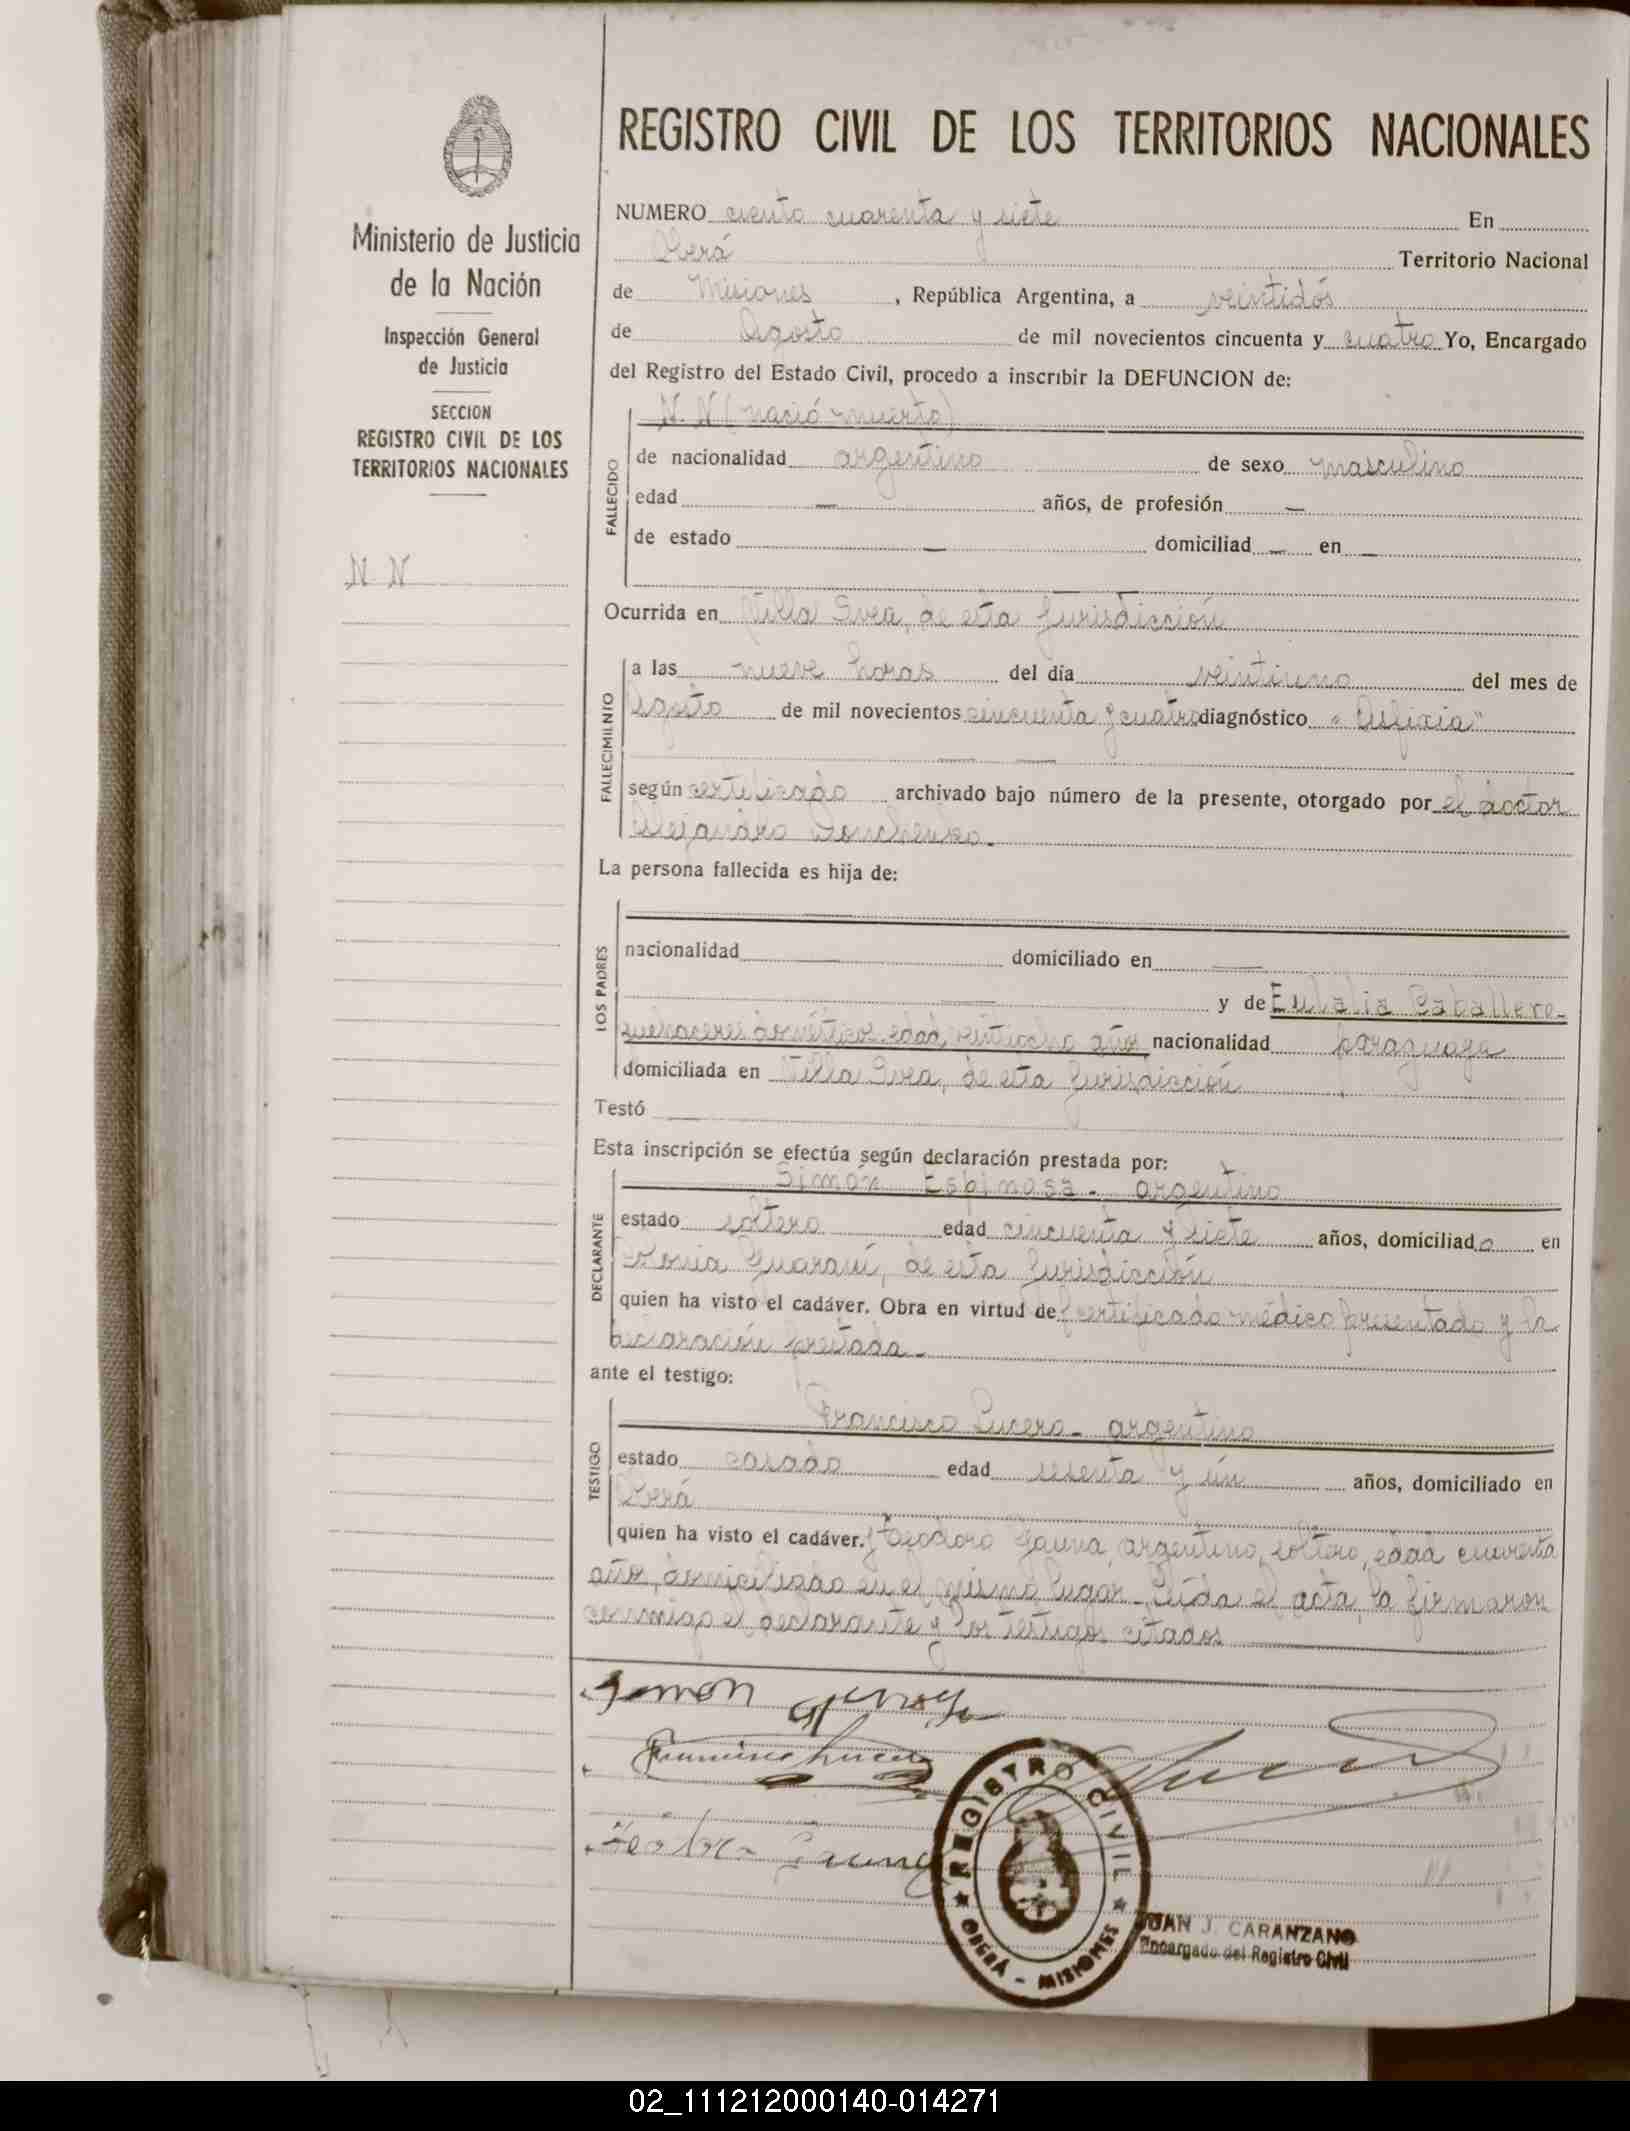 REGISTRO CIVIL DE LOS TERRITORIOS NACIONALES
Ministerio de Justicia
de la Nación
Inspección General
de Justicia
SECCION
REGISTRO CIVIL DE LOS
TERRITORIOS NACIONALES
N N
NUMERO ciento cuarenta y siete En
Oberá Territorio Nacional
de Misiones, República Argentina, a veintidós
de Agosto de mil novecientos cincuenta y cuatro Yo, Encargado
del Registro del Estado Civil, procedo a inscribir la DEFUNCION de:
N. N (nació muerto)
FALLECIDO
de nacionalidad argentino de sexo masculino
edad — años, de profesión —
de estado — domiciliad — en —
Ocurrida en Villa Svea, de esta Jurisdicción
FALLECIMIENTO
a las nueve horas del día veintiuno del mes de
Agosto de mil novecientos cincuenta y cuatro diagnóstico "Asfixia"
según certificado archivado bajo número de la presente, otorgado por el doctor
Alejandro
La persona fallecida es hija de:
LOS PADRES
nacionalidad — domiciliado en —
— y de Eulalia Caballero-
quehaceres domésticos, edad veintiocho años nacionalidad paraguaya
domiciliada en Villa Svea, de esta Jurisdicción
Testó
Esta inscripción se efectúa según declaración prestada por:
Simón Espinosa - argentino
DECLARANTE
estado soltero edad cincuenta y siete años, domiciliado en
Colonia Guaraní, de esta Jurisdicción
quien ha visto el cadáver. Obra en virtud del certificado médico presentado y la
declaración prestada.-
ante el testigo:
Francisco Lucero - argentino
TESTIGO
estado casado edad sesenta y ún años, domiciliado en
Oberá
quien ha visto el cadáver. y Teodoro Gauna, argentino, soltero, edad cuarenta
años, domiciliado en el mismo lugar.- Leída el acta, la firmaron
conmigo el declarante y los testigos citados
Simon
Francisco Lucero
Gauna
REGISTRO CIVIL
OBERÁ - MISIONES
JUAN J. CARANZANO
Encargado del Registro Civil
02_111212000140-014271